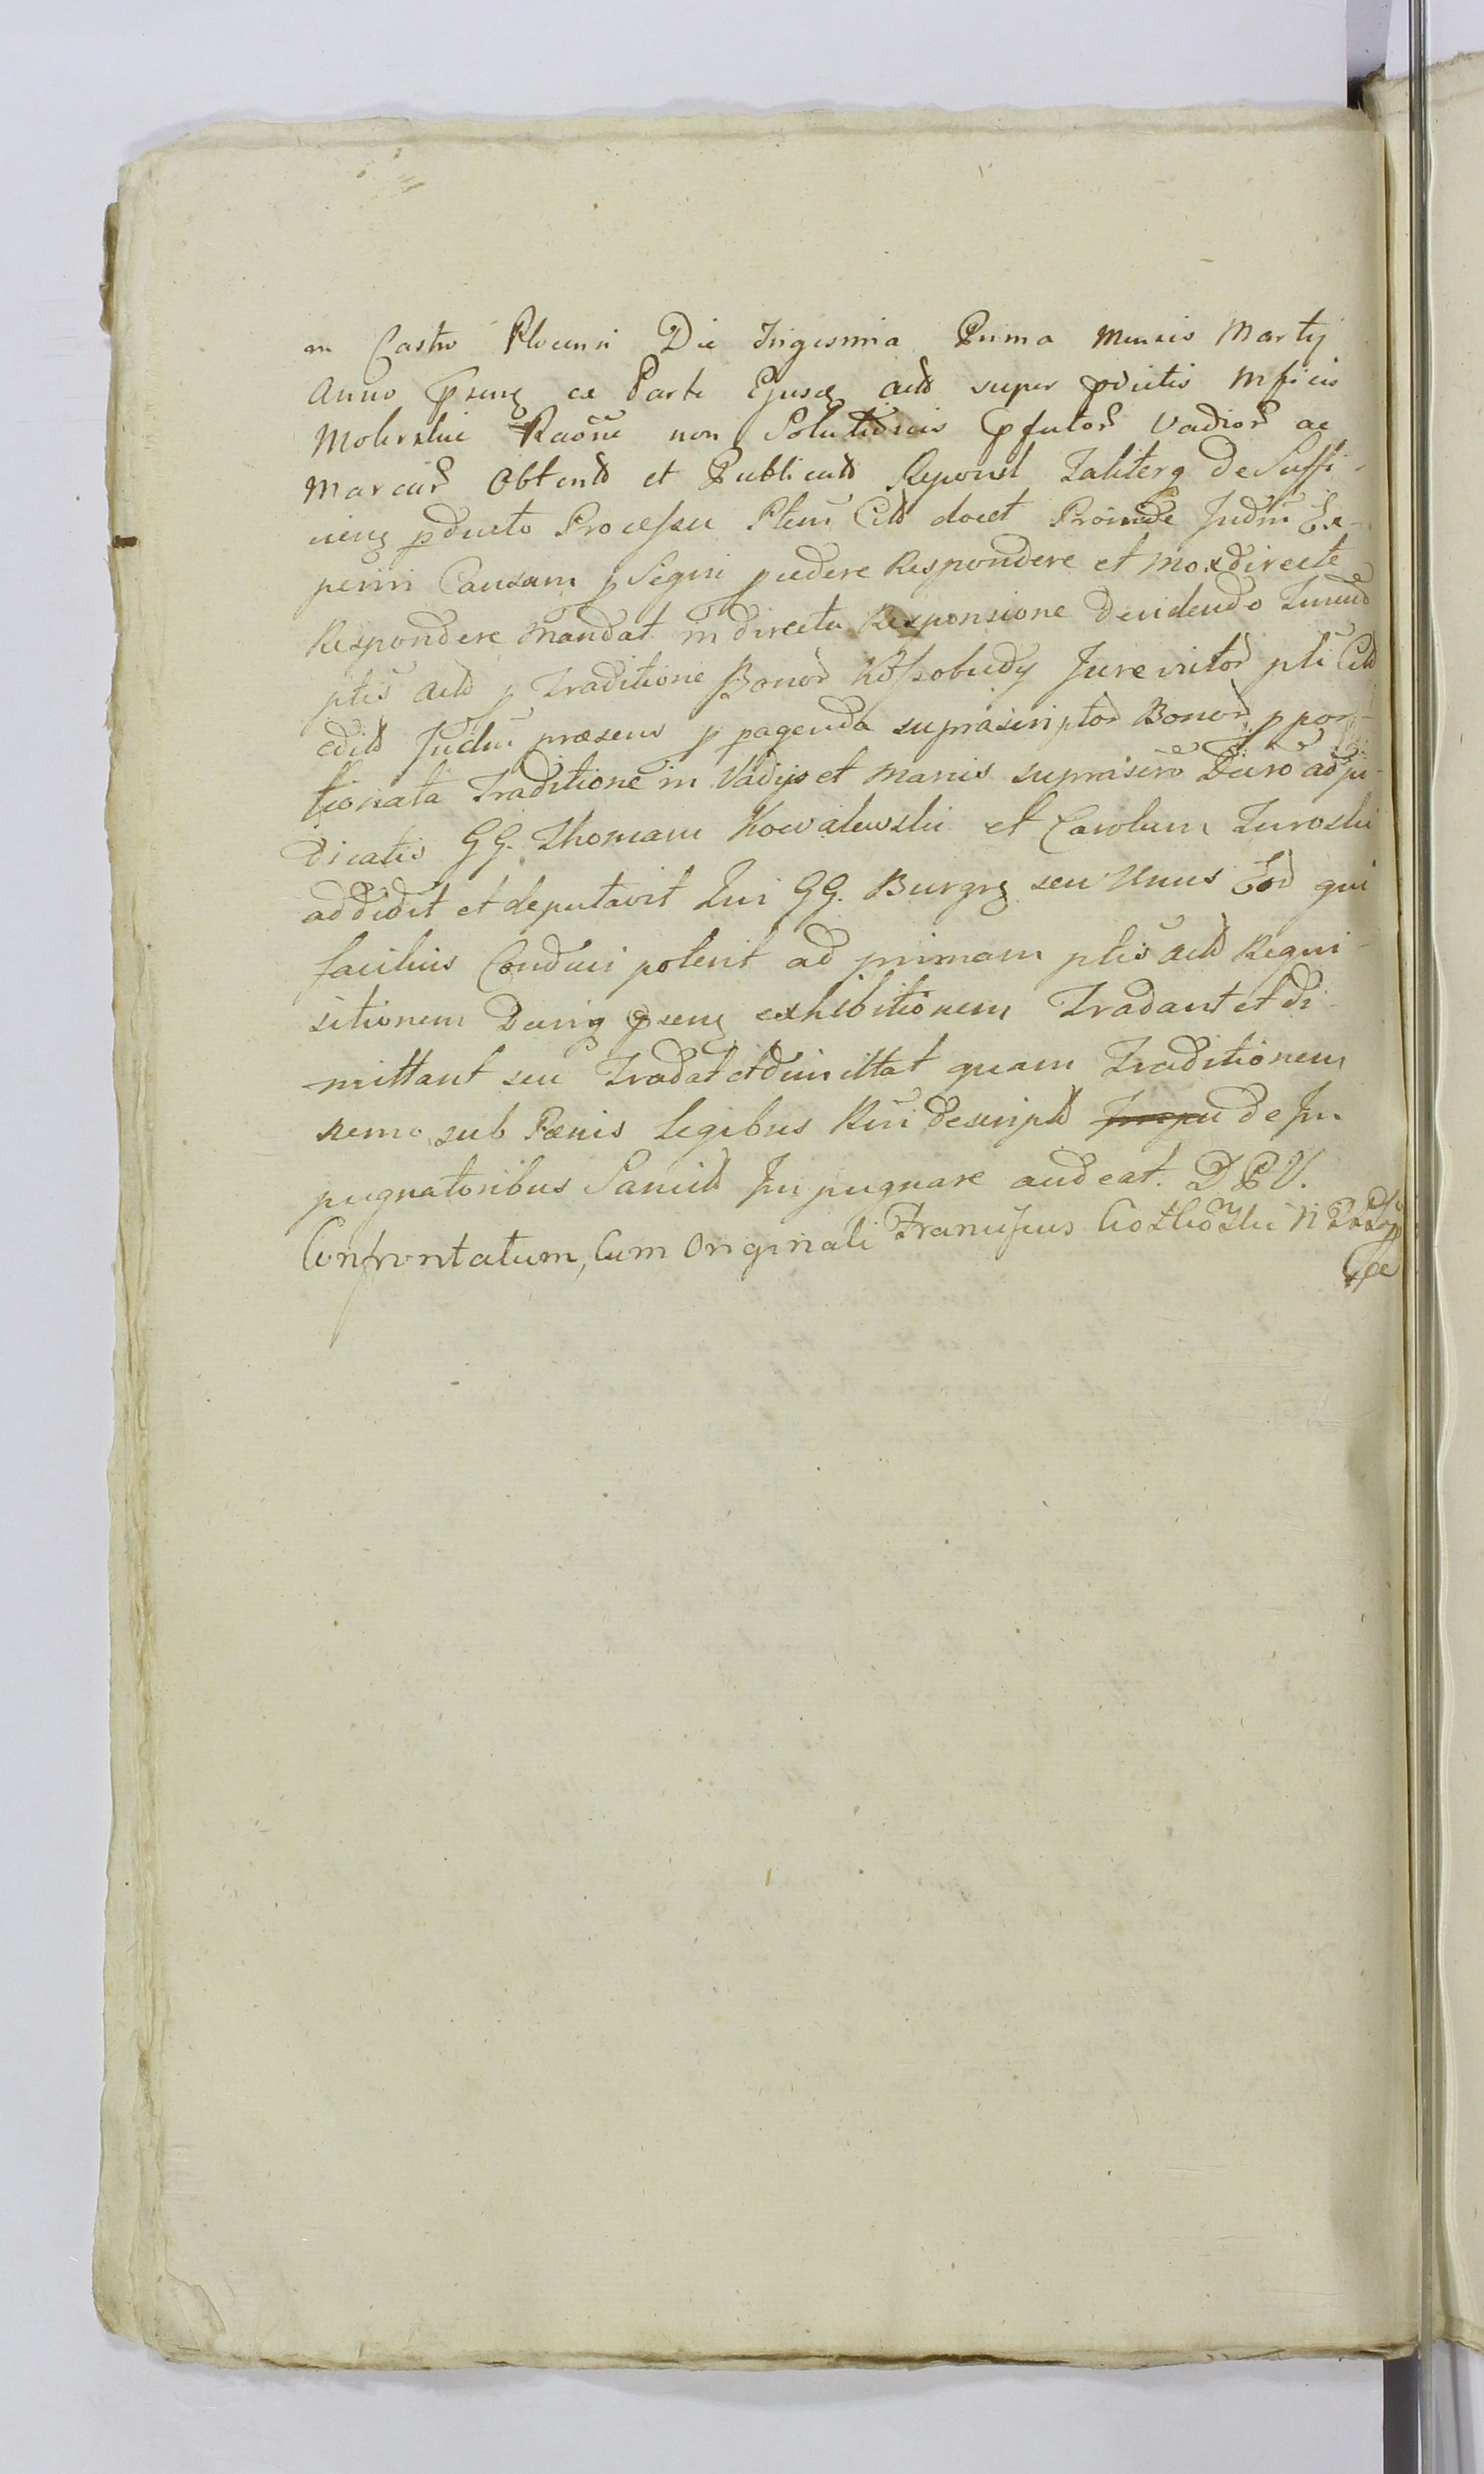 in Castro Plocensi Die Trigesima Prima Mensis Martij
Anno pnsenq ex Parte Ejusq actt super pdictis Mficis
Mokrskie Raone non Solutionis pfutor Vadior ac
Marcar Obtentt et Publicatt Reponit Taliterq de Suffi-
cienq pducto Processu Pleni Citt docet Proinde Judm Ex-
periri Causam p Seqvi pcedere Respondere et mox directe
Respondere Mandat in directa Responsione Decidendo
ptis actt p Traditione Bonor Kossobudy Jure victor pti Citt
editt Judm præsens p pagenda suprascriptor Bonor p por-
tionata Traditione in Vadijs et Marcis suprascro Decro adju-
dicatis GG. Thomam Kowalewski et Carolum Turoski
addidit et deputavit Qui GG. Burgrq seu Unus Eor qui
facilius Conduci poterit ad primam ptis actt Requi-
sitionem Decriq psenq exhibitionem Tradant et di-
mittant seu Tradat et dimittat quam Traditionem
nemo sub Pænis legibus Rni descriptt de Im
pugnatoribus Sancitt Impugnare audeat. D P V.
Confrontatum, Cum Originali Franciscus